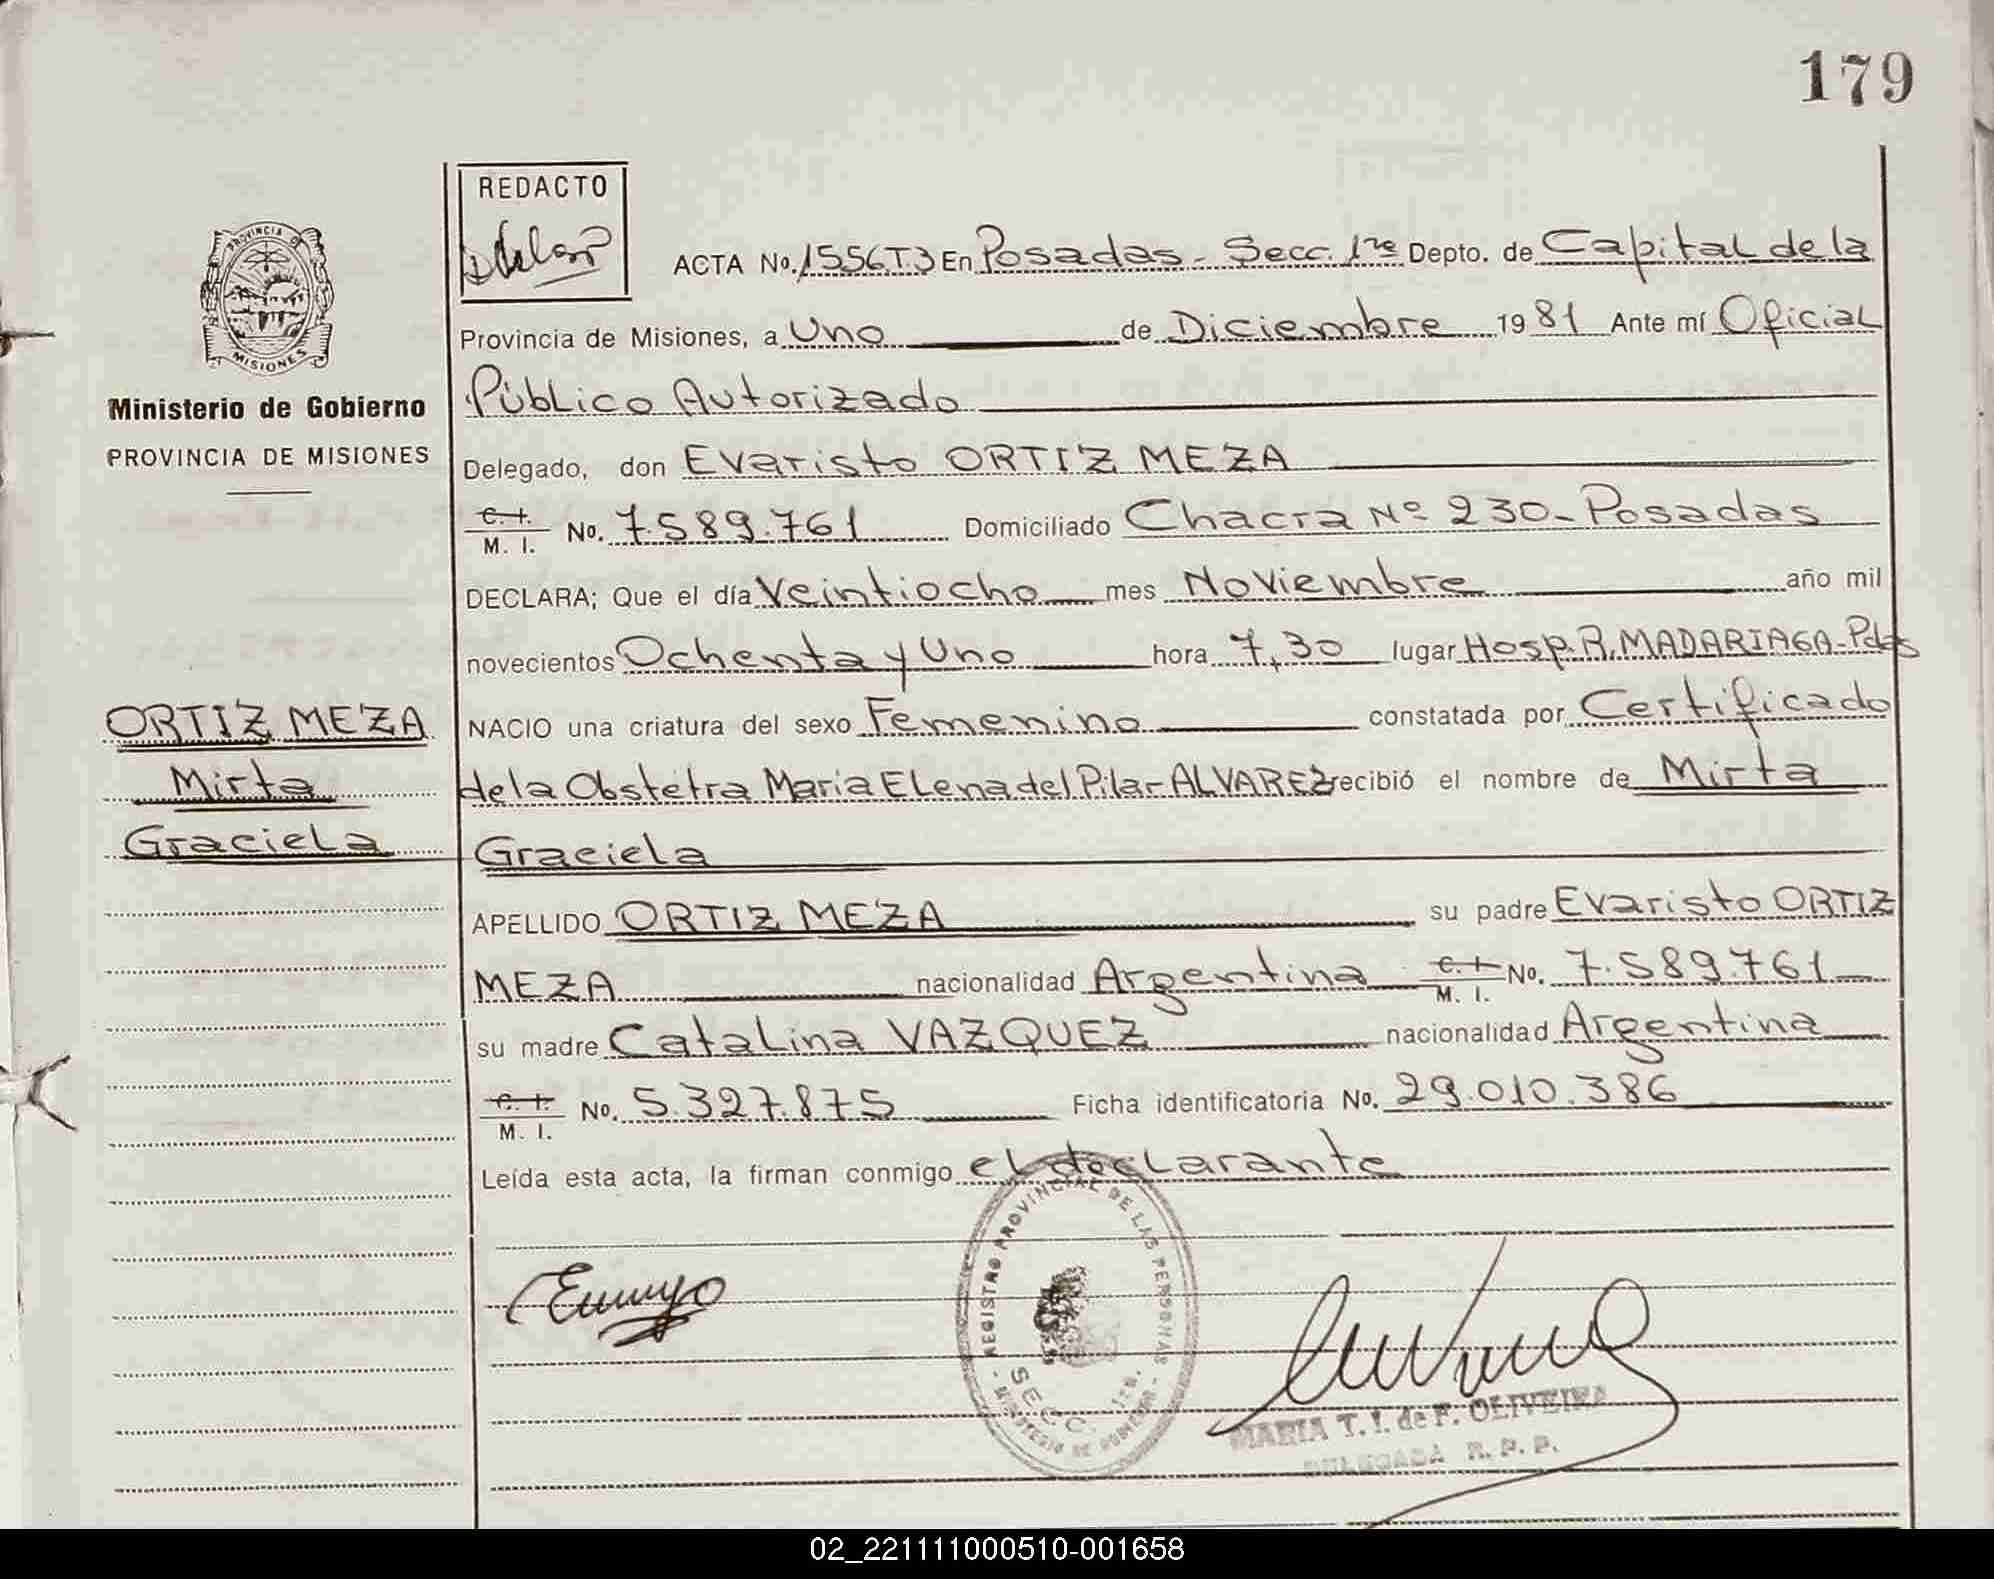 179
REDACTO
ACTA No. 1556T3 En Posadas - Secc. 1ra Depto. de Capital de la
Provincia de Misiones, a Uno de Diciembre 1981 Ante mí Oficial
PROVINCIA DE
MISIONES
Ministerio de Gobierno
PROVINCIA DE MISIONES
Público Autorizado
Delegado, don Evaristo ORTIZ MEZA
C. I.
M. I. No. 7.589.761 Domiciliado Chacra Nº 230 - Posadas
DECLARA; Que el día Veintiocho mes Noviembre año mil
novecientos Ochenta y Uno hora 7,30 lugar Hosp. R. MADARIAGA - Pdas
ORTIZ MEZA
Mirta
Graciela
NACIO una criatura del sexo Femenino constatada por Certificado
de la Obstetra Maria Elena del Pilar ALVAREZ recibió el nombre de Mirta
Graciela
APELLIDO ORTIZ MEZA su padre Evaristo ORTIZ
MEZA nacionalidad Argentina C. I. M. I. No. 7.589.761
su madre Catalina VAZQUEZ nacionalidad Argentina
C. I.
M. I. No. 5.327.875 Ficha identificatoria No. 29.010.386
Leída esta acta, la firman conmigo el declarante
REGISTRO PROVINCIAL DE LAS PERSONAS
SECC. 1ra.
- MINISTERIO DE GOBIERNO -
MARIA T. I. de F. OLIVEIRA
DELEGADA R. P. P.
02_221111000510-001658